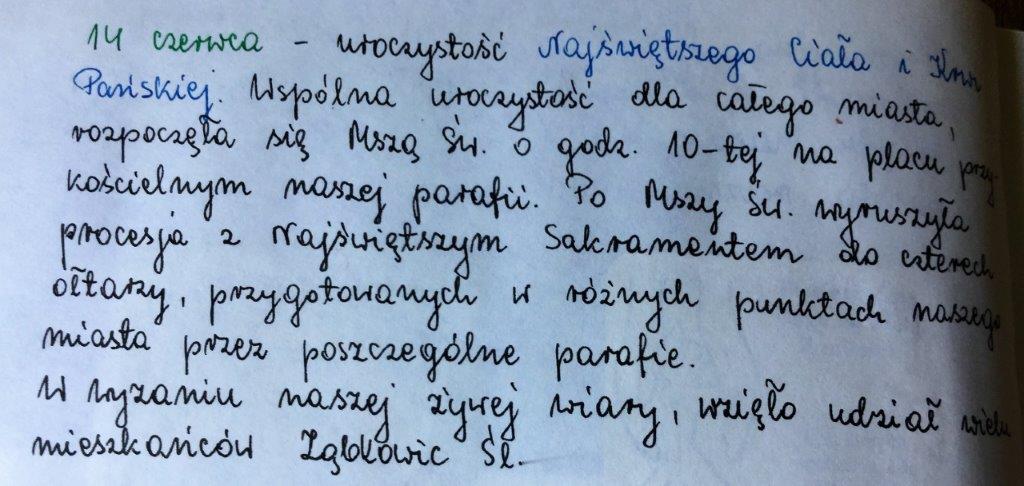 14 czerwca - uroczystość Najświętszego Ciała i Krwi
Pańskiej. Wspólna uroczystość dla całego miasta,
rozpoczęła się Mszą Św. o godz. 10-tej na placu przy-
kościelnym naszej parafii. Po Mszy Św. wyruszyła
procesja z Najświętszym Sakramentem do czterech
ołtarzy, przygotowanych w różnych punktach naszego
miasta przez poszczególne parafie.
W wyzaniu naszej żywej wiary, wzięło udział wielu
mieszkańców Ząbkowic Śl.